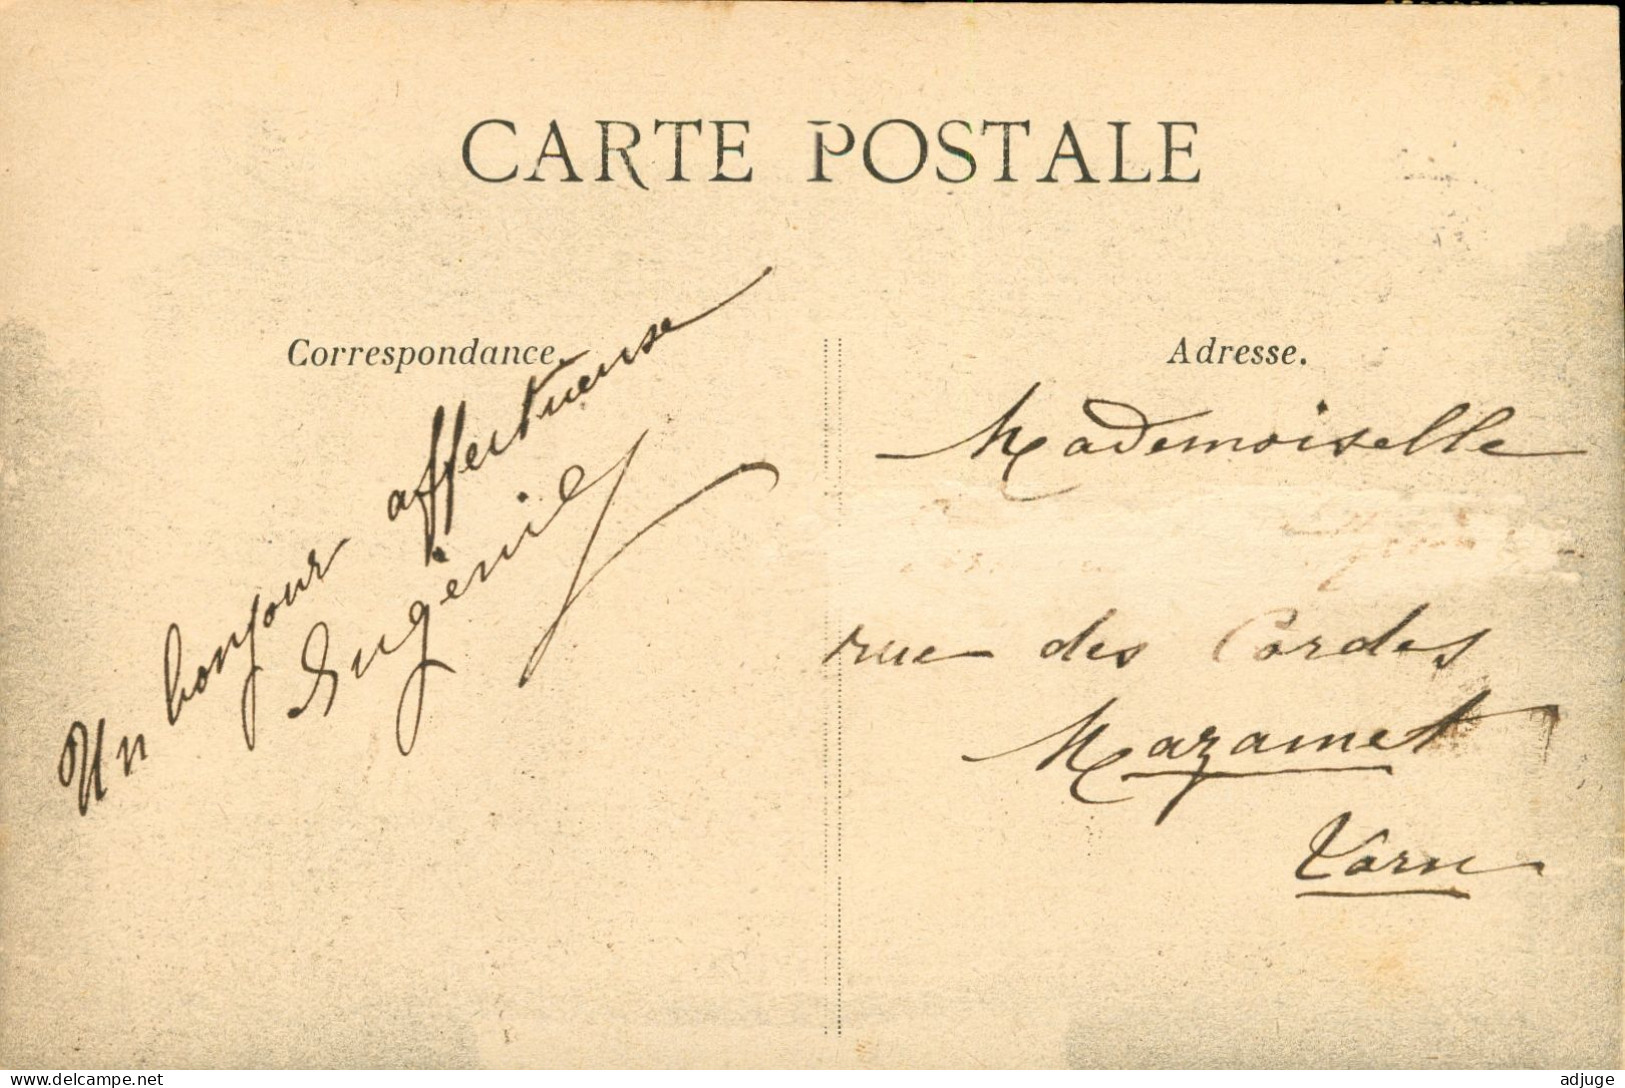 CARTE POSTALE
Correspondance.
Un bonjour affectueuse
Eugénie
Adresse.
Mademoiselle
rue des Cordes
Mazamet
Tarn
www.delcampe.net
adjuge